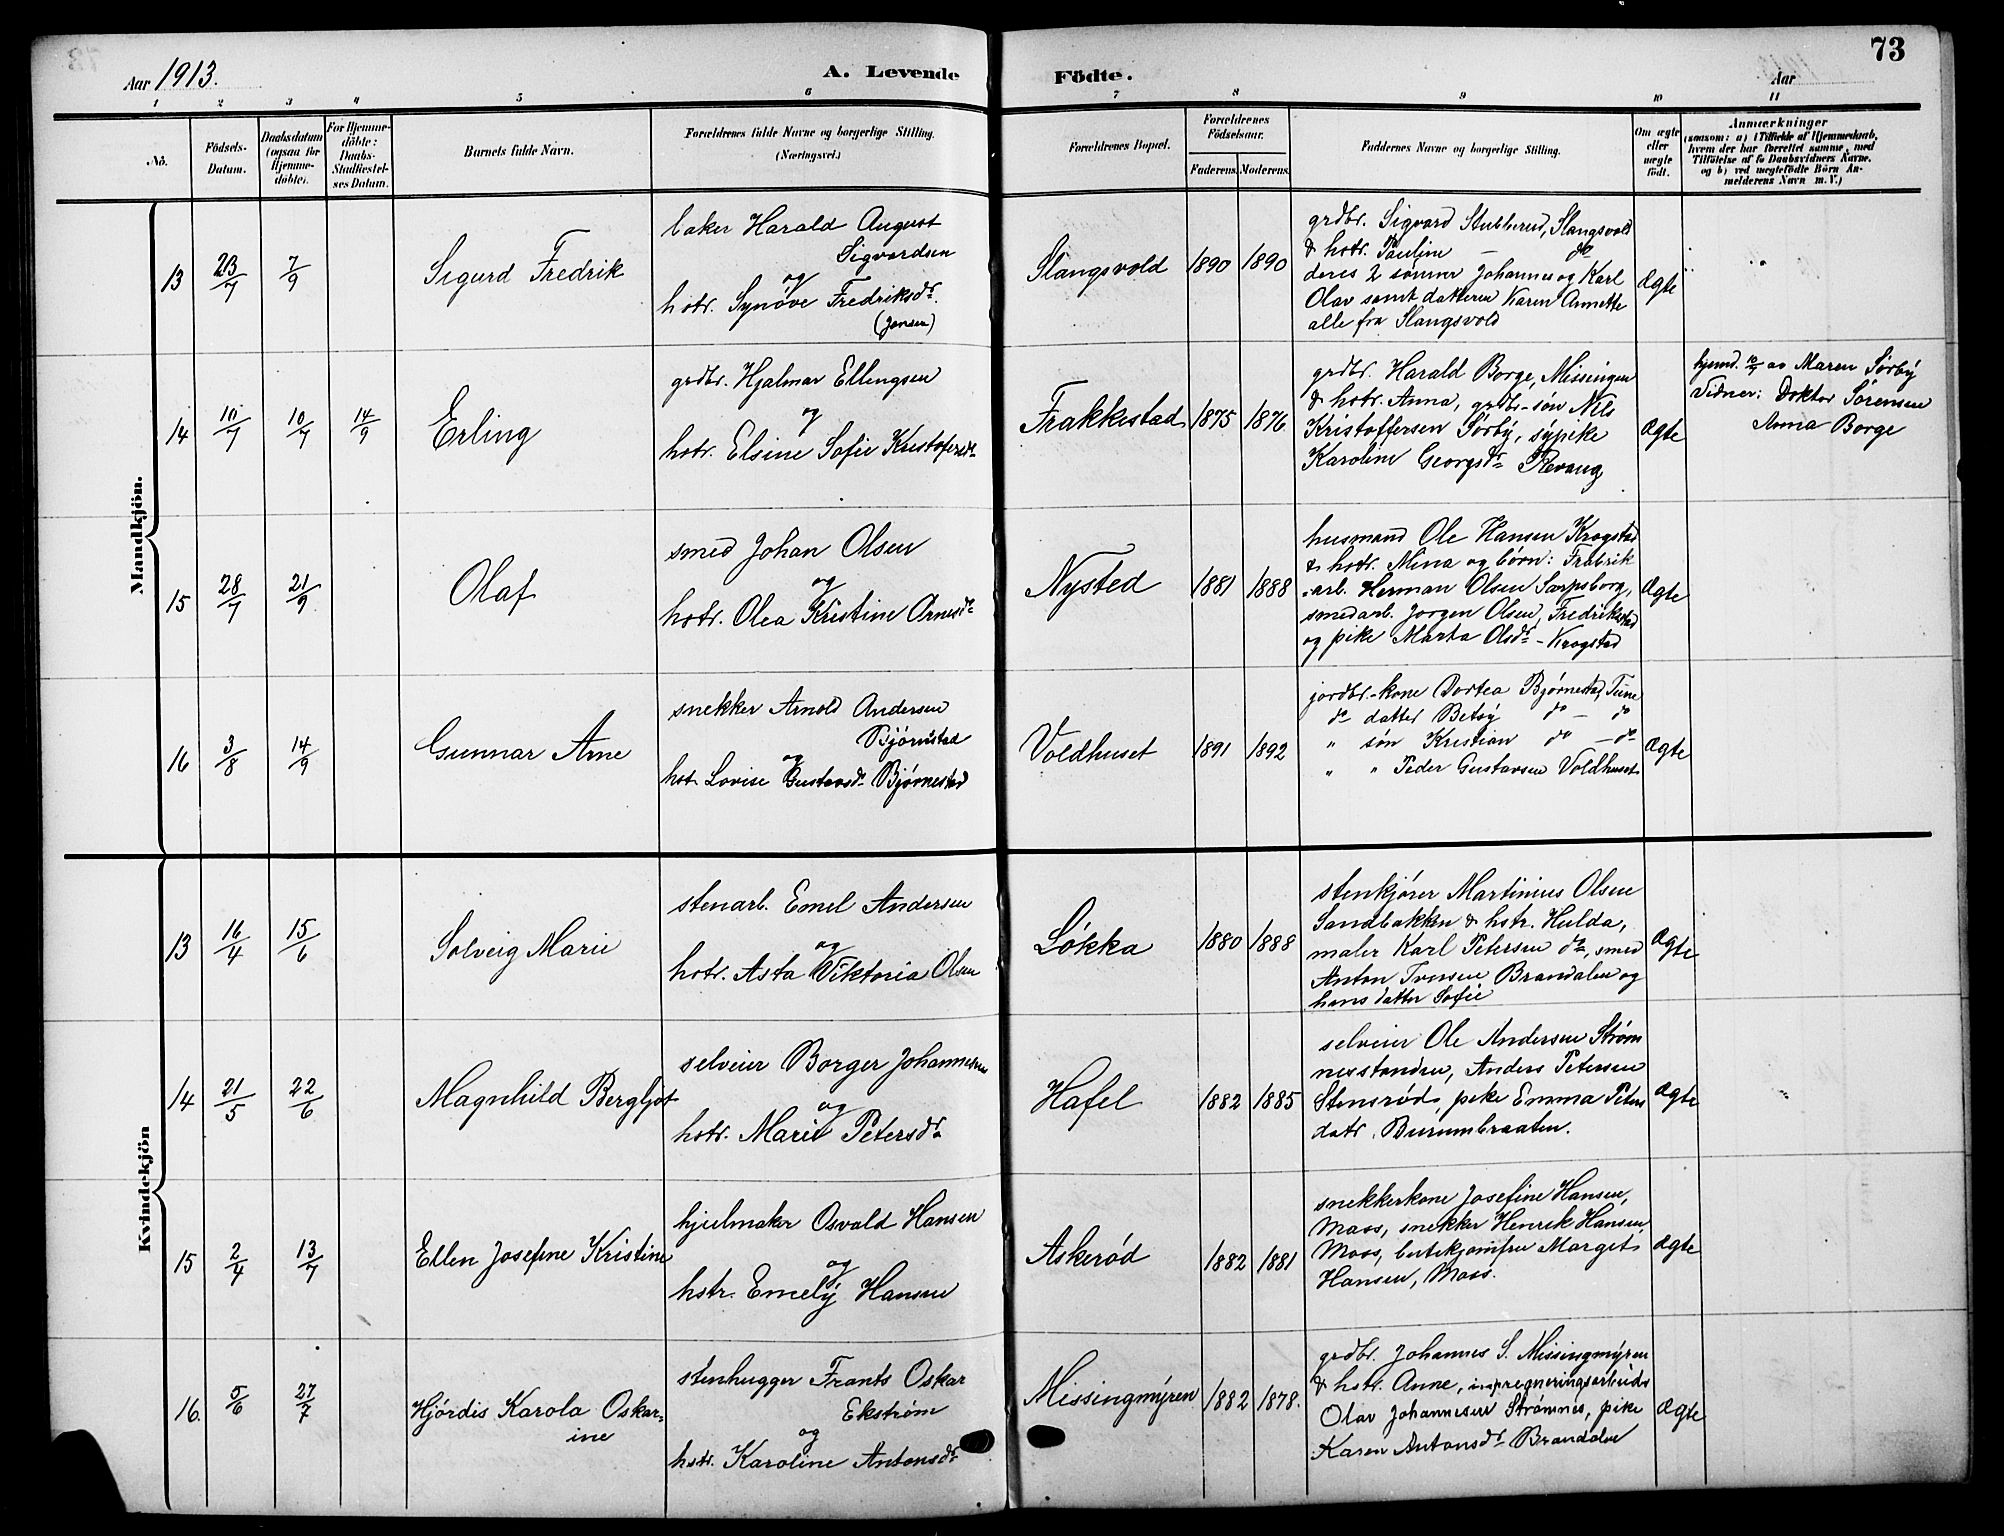 Aar 1913.
A. Levende Födte.
Aar
73
1 2 3 4 5 6 7 8 9 10 11
No.
Födsels-Datum.
Daabsdatum (ogsaa for Hjemme-döbte).
For Hjemme-döbte: Daabs-Stadfæstel-ses Datum.
Barnets fulde Navn.
Forældrenes fulde Navne og borgerlige Stilling.
(Næringsvei.)
Forældrenes Bopæl.
Forældrenes Födselsaar.
Faderens. Moderens.
Faddernes Navne og borgerlige Stilling.
Om ægte eller uægte födt.
Anmærkninger
(saasom: a) i Tilfælde af Hjemmedaab,
hvem der har forrettet samme, med
Tilföielse af to Daabsvidners Navne.
og b) ved uægtefödte Börn An-
melderens Navn m. V.)
Mandkjön.
13 23/7 7/9
Sigurd Fredrik
baker Harald August
Sigvardsen
og
hstr. Synöve Fredriksdr.
(Jensen)
Slangsvold 1890 1890
grdbr. Sigvard Stubberud, Slangsvold
& hstr. Pauline — do
deres 2 sønner Johannes og Karl
Olav samt datteren Karen Annette
alle fra Slangsvold
Ægte
14 10/7 10/7 14/9
Erling
grdbr. Hjalmar Ellingsen
og
hstr. Elsine Sofie Kristofersdr.
Frakkestad 1875 1876
grdbr. Harald Borge, Missingen
& hstr. Anna, grdbr-søn Nils
Kristoffersen Sørby, sypike
Karoline Georgsdr. Revaug
Ægte
hjemd. 10/7 av Maren Sørby
Vidner: Doktor Sörensen
Anna Borge
15 28/7 21/9
Olaf
smed Johan Olsen
og
hstr. Olea Kristine Arnesdr.
Nysted 1881 1888
husmand Ole Hansen Krogstad
& hstr. Mina og børn: Frabrik
arb. Herman Olsen Sarpsborg,
smedarb. Jørgen Olsen, Fredrikstad
og pike Marta Olsdr. - Krogstad
Ægte
16 3/8 14/9
Gunnar Arne
snekker Arnold Andersen
Bjørnstad
og
hst. Lovise Gustavsdr. Bjørnestad
Voldhuset 1891 1892
jordbr.-kone Dortea Bjørnestad, Tune
do datter Betsy do — do
„ søn Kristian do — do
„ „ Peder Gustavsen Voldhuset
Ægte
Kvindekjön
13 16/4 15/6
Solveig Marie
stenarb. Emel Andersen
og
hstr. Asta Viktoria Olsen
Løkka 1880 1888
stenkjører Martinius Olsen
Sandbakken & hstr. Hulda,
maler Karl Petersen do, smed
Anton Iversen Brandalen og
hans datter Sofie
Ægte
14 21/5 22/6
Magnhild Bergljot
selveier Borger Johannesen
og
hstr. Marie Petersdr.
Hafel 1882 1885
selveier Ole Andersen Strøm
nesstanden, Anders Petersen
Stensrød, pike Emma Peters
datr. Burumbraaten.
Ægte
15 2/4 13/7
Ellen Josefine Kristine
hjulmaker Osvald Hansen
og
hstr. Emely Hansen
Askerød 1882 1881
snekkerkone Josefine Hansen,
Moss, snekker Henrik Hansen
Moss, butikjomfru Margit
Hansen, Moss.
Ægte
16. 5/6 27/7
Hjördis Karola Oskar=
ine
stenhugger Frants Oskar
Ekstrøm
og
hstr. Karoline Antonsdr.
Missingmyren 1882 1878.
grdbr. Johannes S. Missingmyren
& hstr. Anne, impregneringsarbeider
Olav Johannesen Strømnes, pike
Karen Antonsdr. Brandalen
Ægte